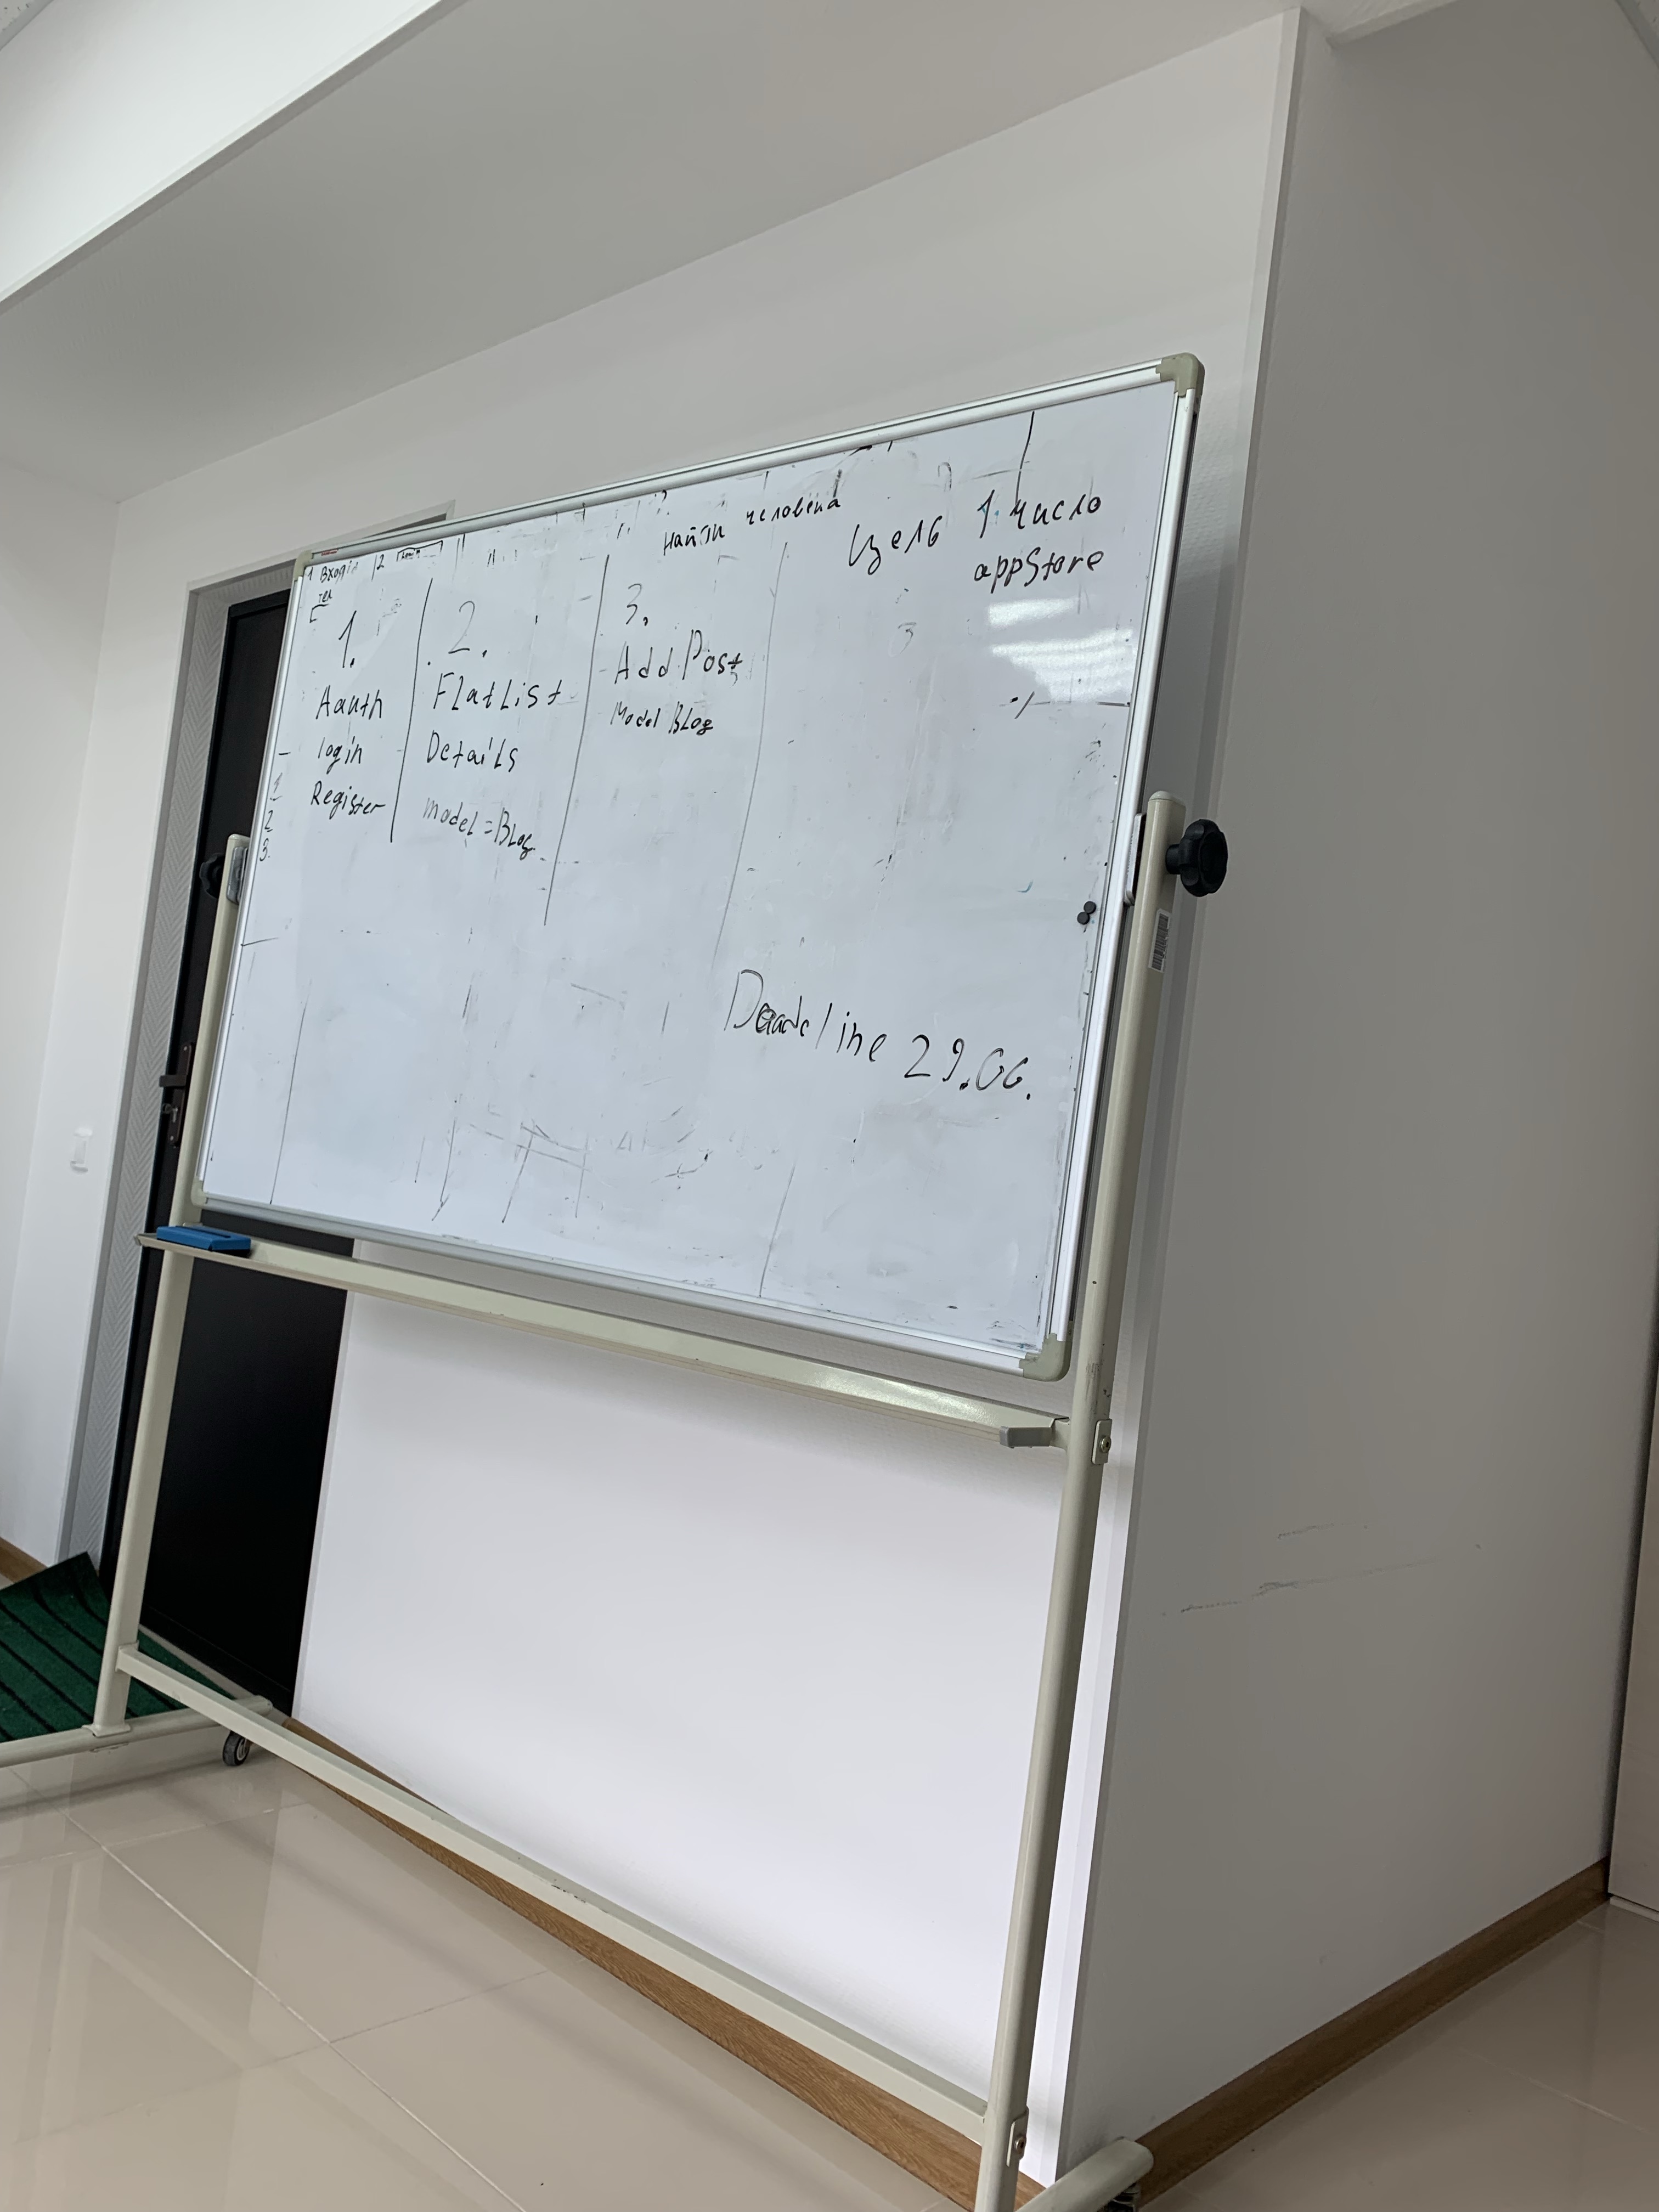 найти человека
Цель 1. число
appStore
1.
Aauth
login
Register
2.
FlatList
Details
model = BLog
3.
Add Post
Model BLog
1
2
3.
Deadline 29.06.